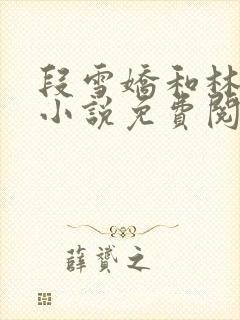 段雪嬌和林
小說免費閱
薛贇之